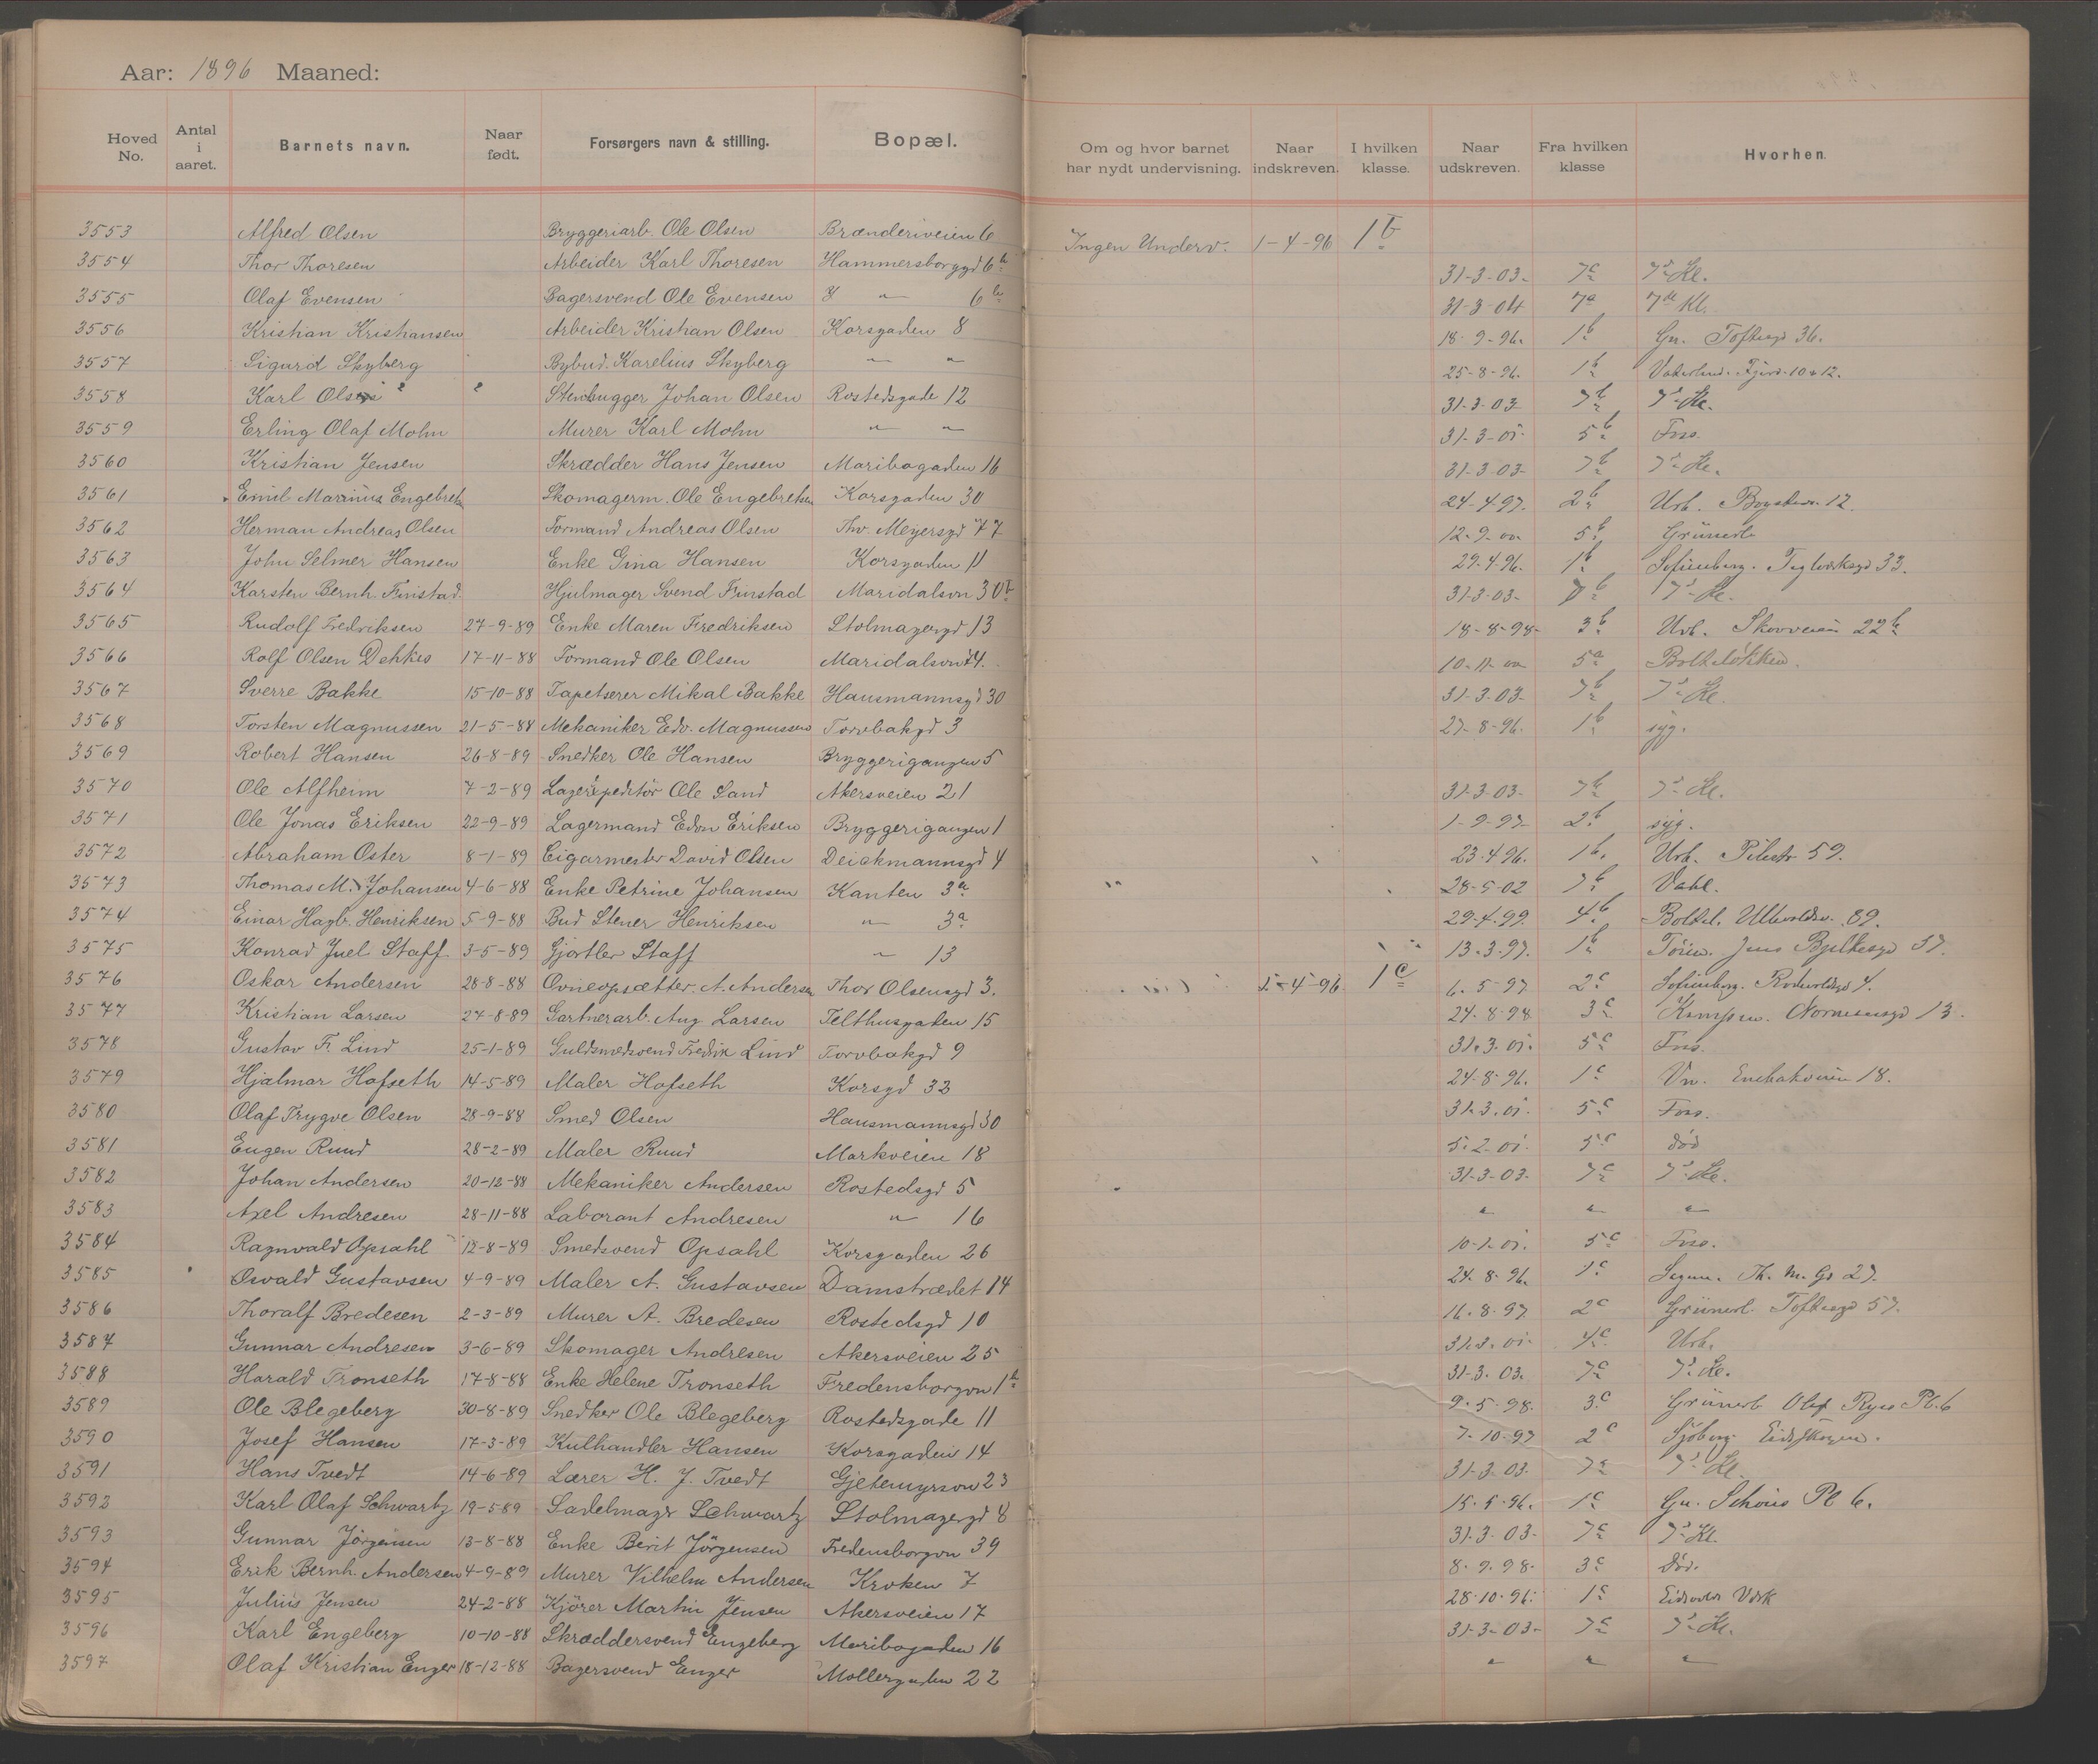 Aar: 1896 Maaned:
Hoved No. Antal i aaret. Barnets navn. Naar født. Forsørgers navn & stilling. Bopæl. Om og hvor barnet har nydt undervisning. Naar indskreven. I hvilken klasse. Naar udskreven. Fra hvilken klasse Hvorhen.
3553 Alfred Olsen Bryggeriarb. Ole Olsen Brænderiveien 6 Ingen Underv. 1-4-96 1b
3554 Thor Thoresen Arbeider Karl Thoresen Hammersborggd 6b 31-3-03- 7c 7d Kl.
3555 Olaf Evensen Bagersvend Ole Evensen " 6b 31-3-04 7a 7de Kl.
3556 Kristian Kristiansen Arbeider Kristian Olsen Korsgaden 8 18-9-96. 1b Gr. Toftesgd 36.
3557 Sigurd Skyberg Bybud. Karelius Skyberg " " 25-8-96. 1b 10 & 12.
3558 Karl Olsen Stenhugger Johan Olsen Rostedsgade 12 31-3-03 7b 7d Kl.
3559 Erling Olaf Mohn Murer Karl Mohn " " 31-3-01- 5b Fors.
3560 Kristian Jensen Skrædder Hans Jensen Maribogaden 16 31-3-03- 7b 7d Kl.
3561 Emil Marinus Engebrets Skomagerm. Ole Engebretsen Korsgaden 30 24-4-97. 2b Urb. 12.
3562 Herman Andreas Olsen Formand Andreas Olsen Thv. Meyersgd 77 12-9-00 5b Grünerl
3563 John Selmer Hansen Enke Gina Hansen Korsgaden 11 29-4-96. 1b Sofienberg. Teglverksgd 33.
3564 Karsten Bernh. Finstad Hjulmager Svend Finstad Maridalsvn 30b 31-3-03- 7b 7d Kl.
3565 Rudolf Fredriksen 27-9-89 Enke Maren Fredriksen Stolmagergd 13 18-8-98- 3b Urb. Skovveien 22b
3566 Rolf Olsen Dehkes 17-11-88 Formand Ole Olsen Maridalsvn 74. 10-11-00 5a Bolteløkken.
3567 Sverre Bakke 15-10-88 Tapetserer Mikal Bakke Hausmannsgd 30 31-3-03- 7b 7d Kl.
3568 Torsten Magnussen 21-5-88 Mekaniker Edv. Magnussen Torvbakgd 3 27-8-96. 1b syg.
3569 Robert Hansen 26-8-89 Snedker Ole Hansen Bryggerigangen 5
3570 Ole Alfheim 7-2-89 Lagerexpeditør Ole Sand Akersveien 21 31-3-03- 7b 7d Kl.
3571 Ole Jonas Eriksen 22-9-89 Lagermand Edvn Eriksen Bryggerigangen 1 1-9-97- 2b syg.
3572 Abraham Oster 8-1-89 Cigarmester David Olsen Deichmannsgd 4 23-4-96. 1b. Urb. Pilestr 59.
3573 Thomas M. Johansen 4-6-88 Enke Petrine Johansen Kanten 3a 28-5-02 7b Vahl.
3574 Einar Hagb. Henriksen 5-9-88 Bud Stener Henriksen " 3a 29-4-99. 4b Boltel. Ullevoldsv. 89.
3575 Konrad Juel Staff 3-5-89 Gjørtler Staff " 13 13-3-97. 1b Tøien. Jens Bjelkesgd 37.
3576 Oskar Andersen 28-8-88 Ovneopsætter. A. Andersen Thor Olsensgd 3. 1-4-96 1c 6-5-97 2c Sofienberg. 4.
3577 Kristian Larsen 27-8-89 Gartnerarb. Aug Larsen Telthusgaden 15 24-8-98 3c Kampen. Normannsgd 13.
3578 Gustav Fr. Lind 25-1-89 Guldsmedsvend Fredrik Lind Torvbakgd 9 31-3-01. 5c Fors.
3579 Hjalmar Hofseth 14-5-89 Maler Hofseth Korsgd 32 24-8-96. 1c Vn. Enebakveien 18.
3580 Olaf Trygve Olsen 28-9-88 Smed Olsen Hausmannsgd 30 31-3-01. 5c Fors.
3581 Eugen Ruud 28-2-89 Maler Ruud Markveien 18 5-2-01. 5c død
3582 Johan Andersen 20-12-88 Mekaniker Andersen Rostedsgd 5 31-3-03- 7c 7d Kl.
3583 Axel Andresen 28-11-88 Laborant Andresen " 16 " " "
3584 Ragnvald Opsahl 12-8-89 Smedsvend Opsahl Korsgaden 26 10-1-01. 5c Fors.
3585 Osvald Gustavsen 4-9-89 Maler A. Gustavsen Damstrædet 14 24-8-96. 1c Sagene. Th. M. Gd 27.
3586 Thoralf Bredesen 2-3-89 Murer A. Bredesen Rostedsgd 10 16-8-97 2c Grünerl. Toftesgd 57.
3587 Gunnar Andresen 3-6-89 Skomager Andresen Akersveien 25 31-3-01- 4c Urb.
3588 Harald Tronseth 17-8-88 Enke Helene Tronseth Fredensborgvn 1b 31-3-03. 7c 7d Kl.
3589 Ole Blegeberg 30-8-89 Snedker Ole Blegeberg Rostedsgade 11 9-5-98. 3c Grünerl Olaf Ryes Pl. 6
3590 Josef Hansen 17-3-89 Kulhandler Hansen Korsgaden 14 7-10-97 2c Eidskogen.
3591 Hans Tvedt 14-6-89 Lærer H. J. Tvedt Gjetemyrsvn 23 31-3-03. 7c 7d Kl.
3592 Karl Olaf Schwartz 19-5-89 Sadelmagr Schwartz Stolmagergd 8 15-5-96. 1c Gr. Schous Pl 6.
3593 Gunnar Jörgensen 13-8-88 Enke Berit Jörgensen Fredensborgvn 39 31-3-03- 7c 7d Kl.
3594 Erik Bernh. Andersen 4-9-89 Murer Vilhelm Andersen Kroken 7 8-9-98- 3c Død.
3595 Julius Jensen 24-2-88 Kjörer Martin Jensen Akersveien 17 28-10-96. 1c Eidsvolds Værk
3596 Karl Engeberg 10-10-88 Skræddersvend Engeberg Maribogaden 16 31-3-03- 7c 7d Kl.
3597 Olaf Kristian Enger 18-12-88 Bagersvend Enger Mollergaden 22 " " "